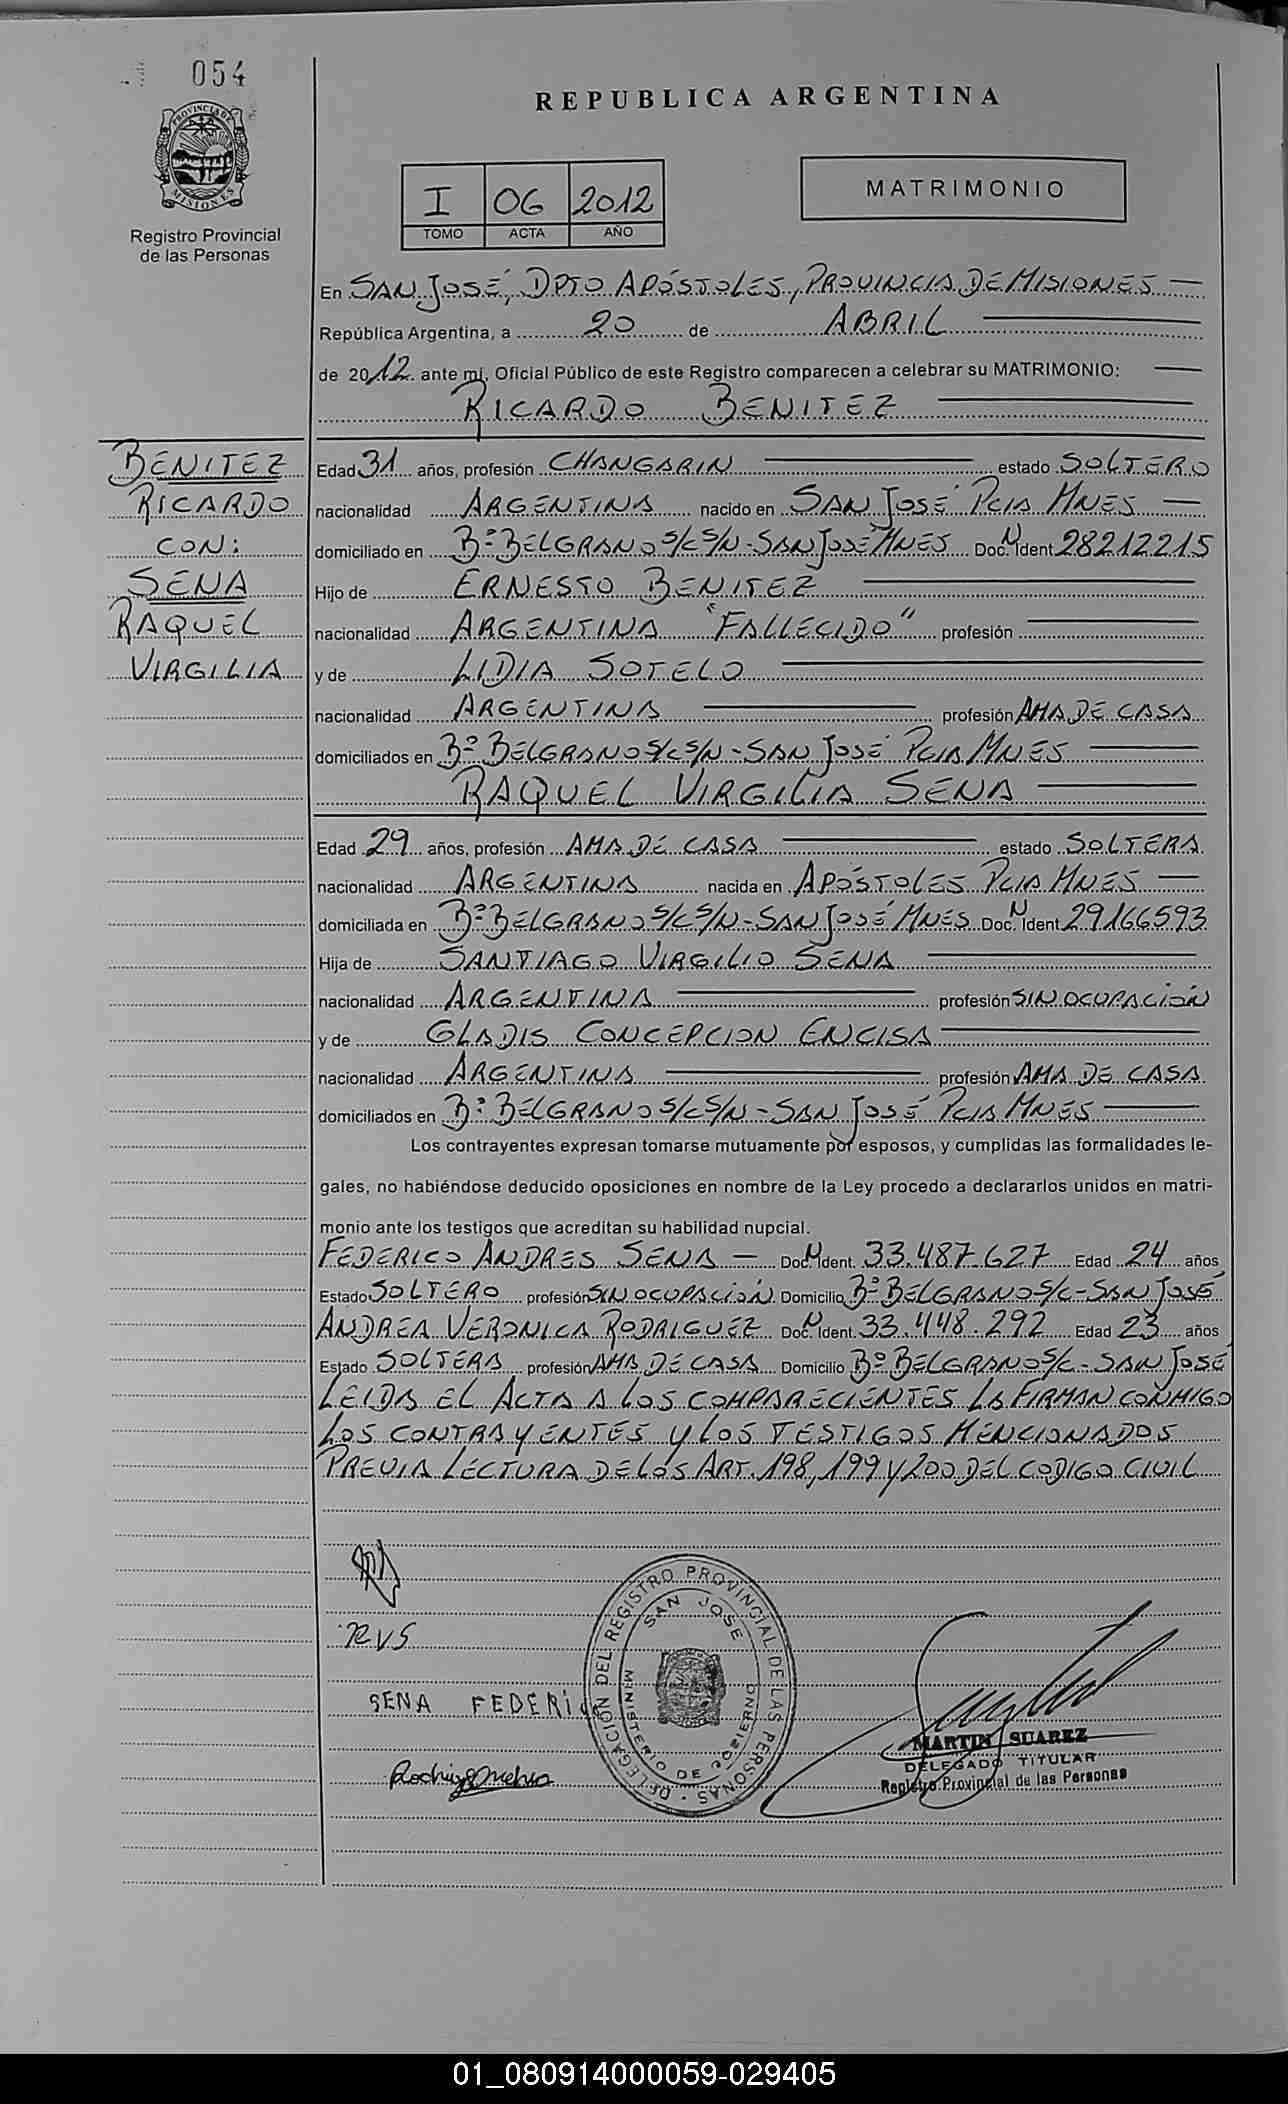 054
PROVINCIA DE
MISIONES
Registro Provincial
de las Personas
REPUBLICA ARGENTINA
I 06 2012
TOMO ACTA AÑO
MATRIMONIO
En SAN JOSÉ, DPTO APÓSTOLES, PROVINCIA DE MISIONES
República Argentina, a 20 de ABRIL
de 2012 ante mí, Oficial Público de este Registro comparecen a celebrar su MATRIMONIO:
RICARDO BENITEZ
BENITEZ
RICARDO
CON:
SENA
RAQUEL
VIRGILIA
Edad 31 años, profesión CHANGARIN estado SOLTERO
nacionalidad ARGENTINA nacido en SAN JOSÉ PCIA MNES
domiciliado en Bº BELGRANO S/C S/N - SAN JOSÉ MNES Doc. N Ident 28212215
Hijo de ERNESTO BENITEZ
nacionalidad ARGENTINA "FALLECIDO" profesión
y de LIDIA SOTELO
nacionalidad ARGENTINA profesión AMA DE CASA
domiciliados en Bº BELGRANO S/C S/N - SAN JOSÉ PCIA MNES
RAQUEL VIRGILIA SENA
Edad 29 años, profesión AMA DE CASA estado SOLTERA
nacionalidad ARGENTINA nacida en APÓSTOLES PCIA MNES
domiciliada en Bº BELGRANO S/C S/N - SAN JOSÉ MNES Doc. N Ident 29166593
Hija de SANTIAGO VIRGILIO SENA
nacionalidad ARGENTINA profesión SIN OCUPACIÓN
y de GLADIS CONCEPCION ENCISA
nacionalidad ARGENTINA profesión AMA DE CASA
domiciliados en Bº BELGRANO S/C S/N - SAN JOSÉ PCIA MNES
Los contrayentes expresan tomarse mutuamente por esposos, y cumplidas las formalidades le-
gales, no habiéndose deducido oposiciones en nombre de la Ley procedo a declararlos unidos en matri-
monio ante los testigos que acreditan su habilidad nupcial.
FEDERICO ANDRES SENA Doc. N Ident. 33.487.627 Edad 24 años
Estado SOLTERO profesión SIN OCUPACIÓN Domicilio Bº BELGRANO S/C - SAN JOSÉ
ANDREA VERONICA RODRIGUEZ Doc. N Ident. 33.448.292 Edad 23 años
Estado SOLTERA profesión AMA DE CASA Domicilio Bº BELGRANO S/C - SAN JOSÉ
LEIDA EL ACTA A LOS COMPARECIENTES LA FIRMAN CONMIGO
LOS CONTRAYENTES Y LOS TESTIGOS MENCIONADOS
PREVIA LECTURA DE LOS ART. 198, 199 Y 200 DEL CODIGO CIVIL
RVS
SENA FEDERI
DELEGACION DEL REGISTRO PROVINCIAL DE LAS PERSONAS
SAN JOSE
MINISTERIO DE GOBIERNO
MARTIN SUAREZ
DELEGADO TITULAR
Registro Provincial de las Personas
01_080914000059-029405